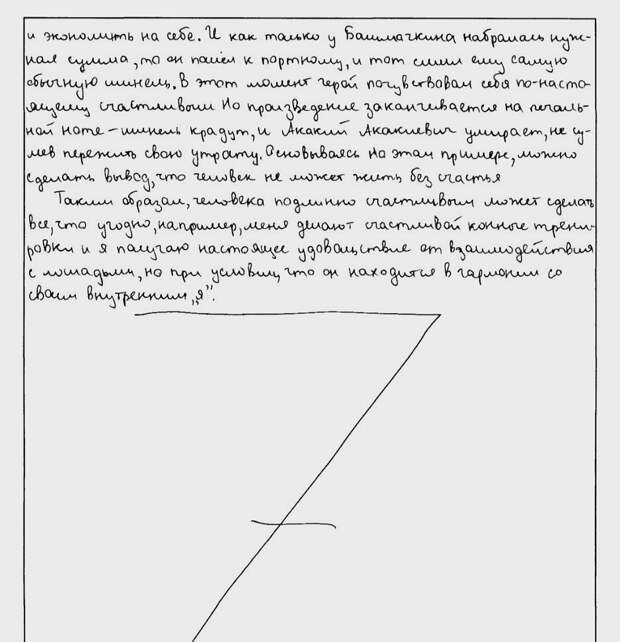 и экономить на себе. И как только у Башмачкина набралась нуж-
ная сумма, то он пошёл к портному, и тот сшил ему самую
обычную шинель. В этот момент герой почувствовал себя по-насто-
ящему счастливым Но произведение заканчивается на печаль-
ной ноте – шинель крадут, и Акакий Акакиевич умирает, не су-
мев пережить свою утрату. Основываясь на этом примере, можно
сделать вывод, что человек не может жить без счастья
Таким образом, человека подлинно счастливым может сделать
все, что угодно, например, меня делают счастливой конные трени-
ровки и я получаю настоящее удовольствие от взаимодействия
с лошадьми, но при условии, что он находится в гармонии со
своим внутренним „я".